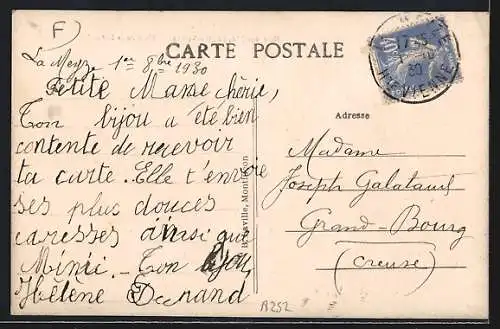 F
CARTE POSTALE
La Meyze 1er 8bre 1930
Petite Marse chérie,
Ton bijou a été bien
contente de recevoir
ta carte. Elle t'envoie
ses plus douces
caresses ainsi que
Mimi. Ton bijou,
Hélène Durand
Adresse
Madame
Joseph Galataud
Grand-Bourg
(Creuse)
40
17
30
HTE VIENNE
A252